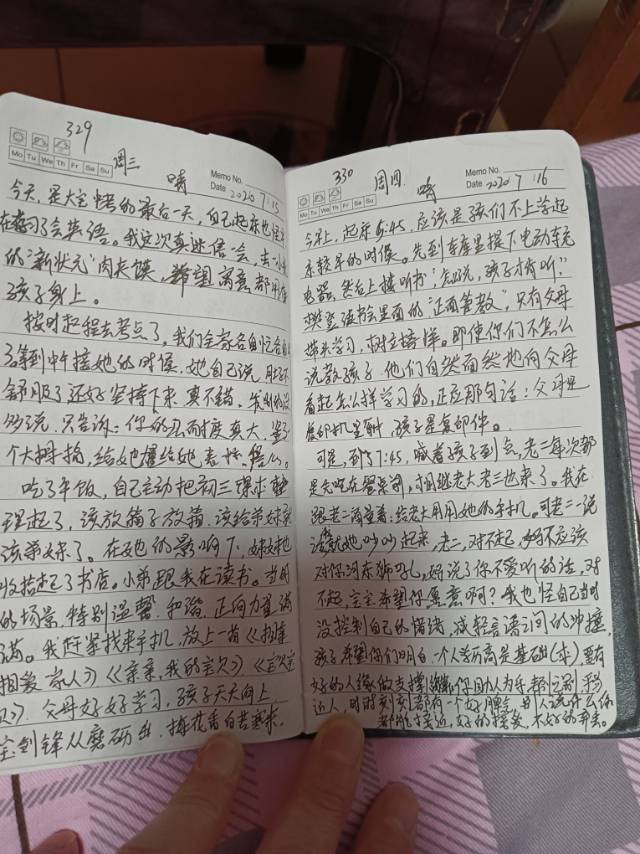 329
周三 晴
Memo No.
Mo Tu We Th Fr Sa Su
Date 2020 7 15
今天，是大宝考的最后一天，自己起来也
在看了会英语。我这次真迷信一会，去
的"新状元"肉夹馍，希望寓意都用在
孩子身上。
按时起程去考点了，我们全家各自忙各自
了等到中午接她的时候，她自己说，肚子不
舒服了还好坚持下来，真不错，我别的没
多说，只告诉：你的忍耐度真大，竖了
个大拇指，给她
吃了午饭，自己主动把初三课本整
理起了，该放箱子放箱，该给弟妹
该弟妹了。在她的影响下，妹妹也
收拾起了书店。小弟跟我在读书。当时
的场景，特别温馨、和谐、正向力量满
满。我赶紧找来手机，放上一首《相亲
相爱一家人》《亲亲，我的宝贝》《宝贝宝
贝》。父母好好学习，孩子天天向上
宝剑锋从磨砺出，梅花香自苦寒来。
330
周四 晴
Memo No.
Mo Tu We Th Fr Sa Su
Date 2020 7 16
今早上，起来5:45，应该是孩们不上学起
来较早的时候。先到车库里提下电动车充
电器，然后上楼听书"怎么说，孩子才肯听"
樊登读书会里面的"正面管教"，只有父母
带头学习，树立榜样。即使你们不怎么
说教孩子，他们自然而然地向父母
看起怎么样学习的，正应那句话：父母是
复印机里面，孩子是复印件。
可是，到了7:45，喊着孩子到点，老二每次都
是先吃在餐桌间，才相继老大老三也来了。我在
跟老二商量着：给老大用用她的手机。可老二一说
话就她吵吵起来，老二，对不起，妈不应该
对你河东狮吼，妈说了你不爱听的话，对
不起，宝宝希望你愿意啊？我也怪自己当时
没控制自己的情绪，减轻言语之间的冲撞，
孩子希望你们明白，一个人学历高是基础(本)，要有
好的人缘做支撑，你助人为乐，都
近人，时时刻刻都有一个好脾气，
都能接近，好的接受，不好的弃去。